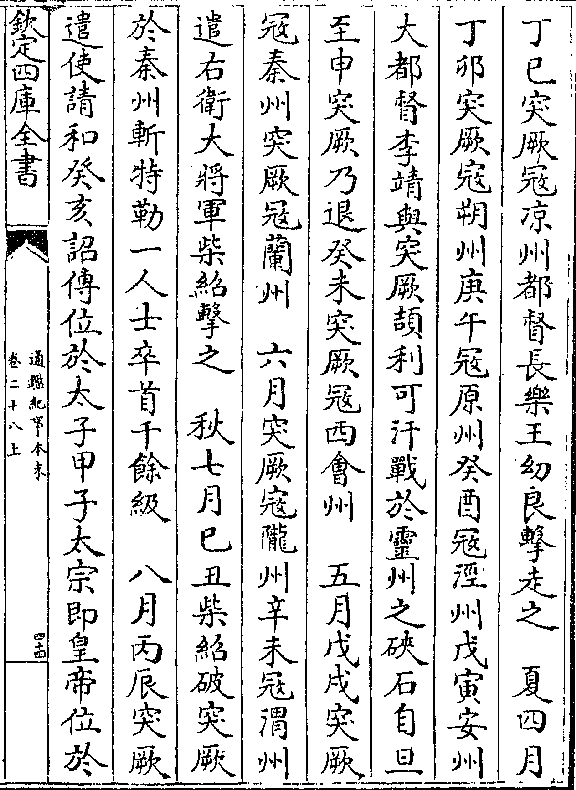 丁巳突厥冦凉州都督長樂王幼良擊走之　夏四月
丁卯突厥寇朔州庚午寇原州癸酉寇涇州戊寅安州
大都督李靖與突厥頡利可汗戰於靈州之硤石自旦
至申突厥乃退癸未突厥寇西會州　五月戊戌突厥
冦秦州突厥冦蘭州　六月突厥寇隴州辛未冦渭州
遣右衛大將軍柴紹擊之　秋七月巳丑柴紹破突厥
於秦州斬特勒一人士卒首千餘級　八月丙辰突厥
遣使請和癸亥詔傳位於太子甲子太宗即皇帝位於
欽定四庫全書
通鑑紀事本末
卷二十八上
四十四